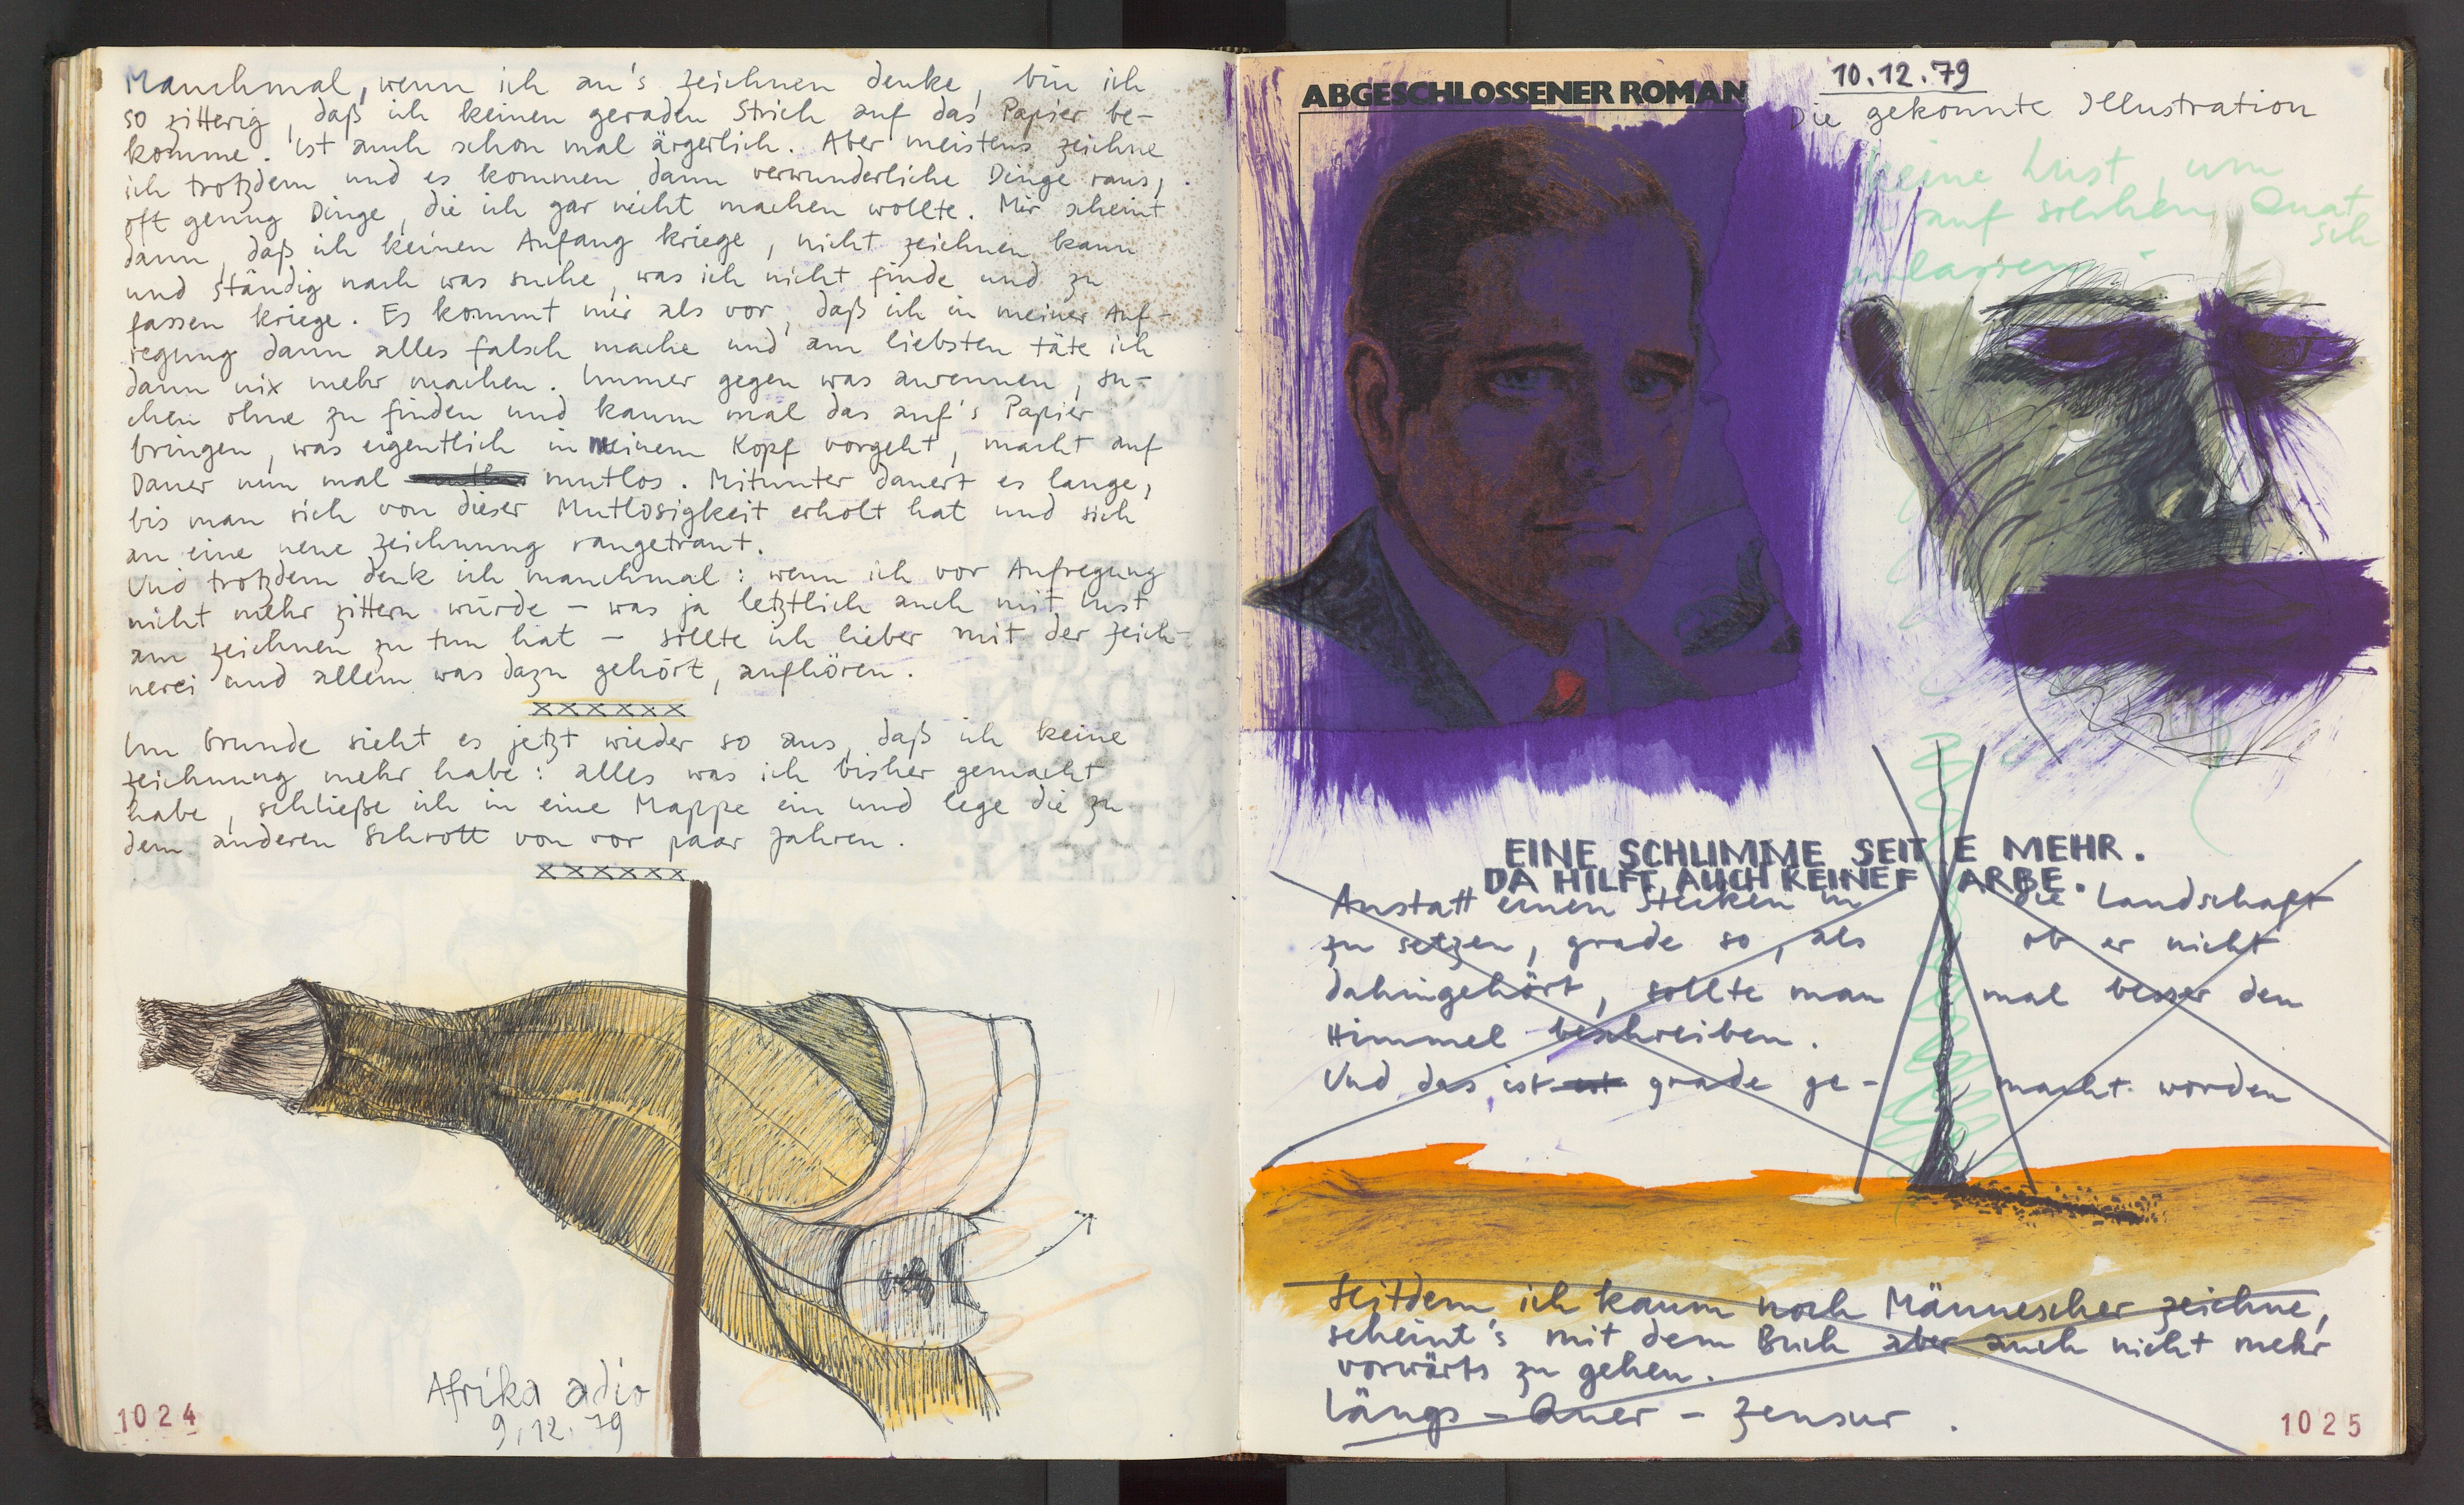 Manchmal, wenn ich an's zeichnen denke, bin ich
so zitterig, daß ich keinen geraden Strich auf das Papier be-
komme. Ist auch schon mal ärgerlich. Aber meistens zeichne
ich trotzdem und es kommen dann verwunderliche Dinge raus,
oft genug Dinge, die ich gar nicht machen wollte. Mir scheint
dann, daß ich keinen Anfang kriege, nicht zeichnen kann
und ständig nach was suche, was ich nicht finde und zu
fassen kriege. Es kommt mir als vor, daß ich in meiner Auf-
regung dann alles falsch mache und am liebsten täte ich
dann nix mehr machen. Immer gegen was anrennen, su-
chen ohne zu finden und kaum mal das auf's Papier
bringen, was eigentlich in meinem Kopf vorgeht, macht auf
Dauer nun mal mutlos. Mitunter dauert es lange,
bis man sich von dieser Mutlosigkeit erholt hat und sich
an eine neue Zeichnung rangetraut.
Und trotzdem denk ich manchmal: wenn ich vor Aufregung
nicht mehr zittern würde – was ja letztlich auch mit Lust
am zeichnen zu tun hat – sollte ich lieber mit der Zeich-
nerei und allem was dazu gehört, aufhören.
xxxxxx
Im Grunde sieht es jetzt wieder so aus, daß ich keine
Zeichnung mehr habe: alles was ich bisher gemacht
habe, schließe ich in eine Mappe ein und lege die zu
dem anderen Schrott von vor paar Jahren.
xxxxxx
Afrika adio
9.12.79
1024
ABGESCHLOSSENER ROMAN
10.12.79
Die gekonnte Illustration
keine Lust, um
auf solchen Quat
sch
EINE SCHLIMME SEITE MEHR.
DA HILFT AUCH KEINE FARBE.
Anstatt einen Stecken in die Landschaft
zu setzen, grade so, als ob er nicht
dahingehört, sollte man mal besser den
Himmel beschreiben.
Und das ist grade ge- macht worden
Seitdem ich kaum noch Männescher zeichne,
scheint's mit dem Buch aber auch nicht mehr
vorwärts zu gehen.
Längs – Quer – Zensur.
1025